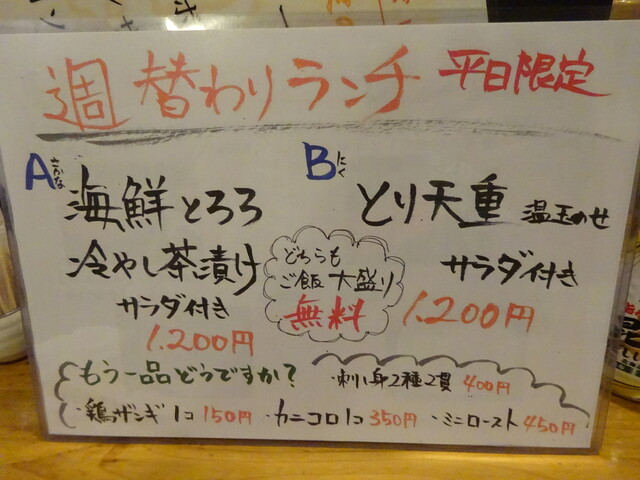 週替わりランチ 平日限定
A さかな
海鮮とろろ
冷やし茶漬け
サラダ付き
1.200円
B にく
とり天重 温玉のせ
サラダ付き
1.200円
どちらも
ご飯大盛り
無料
もう一品どうですか?
・刺し身2種2貫 400円
・鶏ザンギ1コ 150円 ・カニコロ1コ 350円 ・ミニロースト 450円